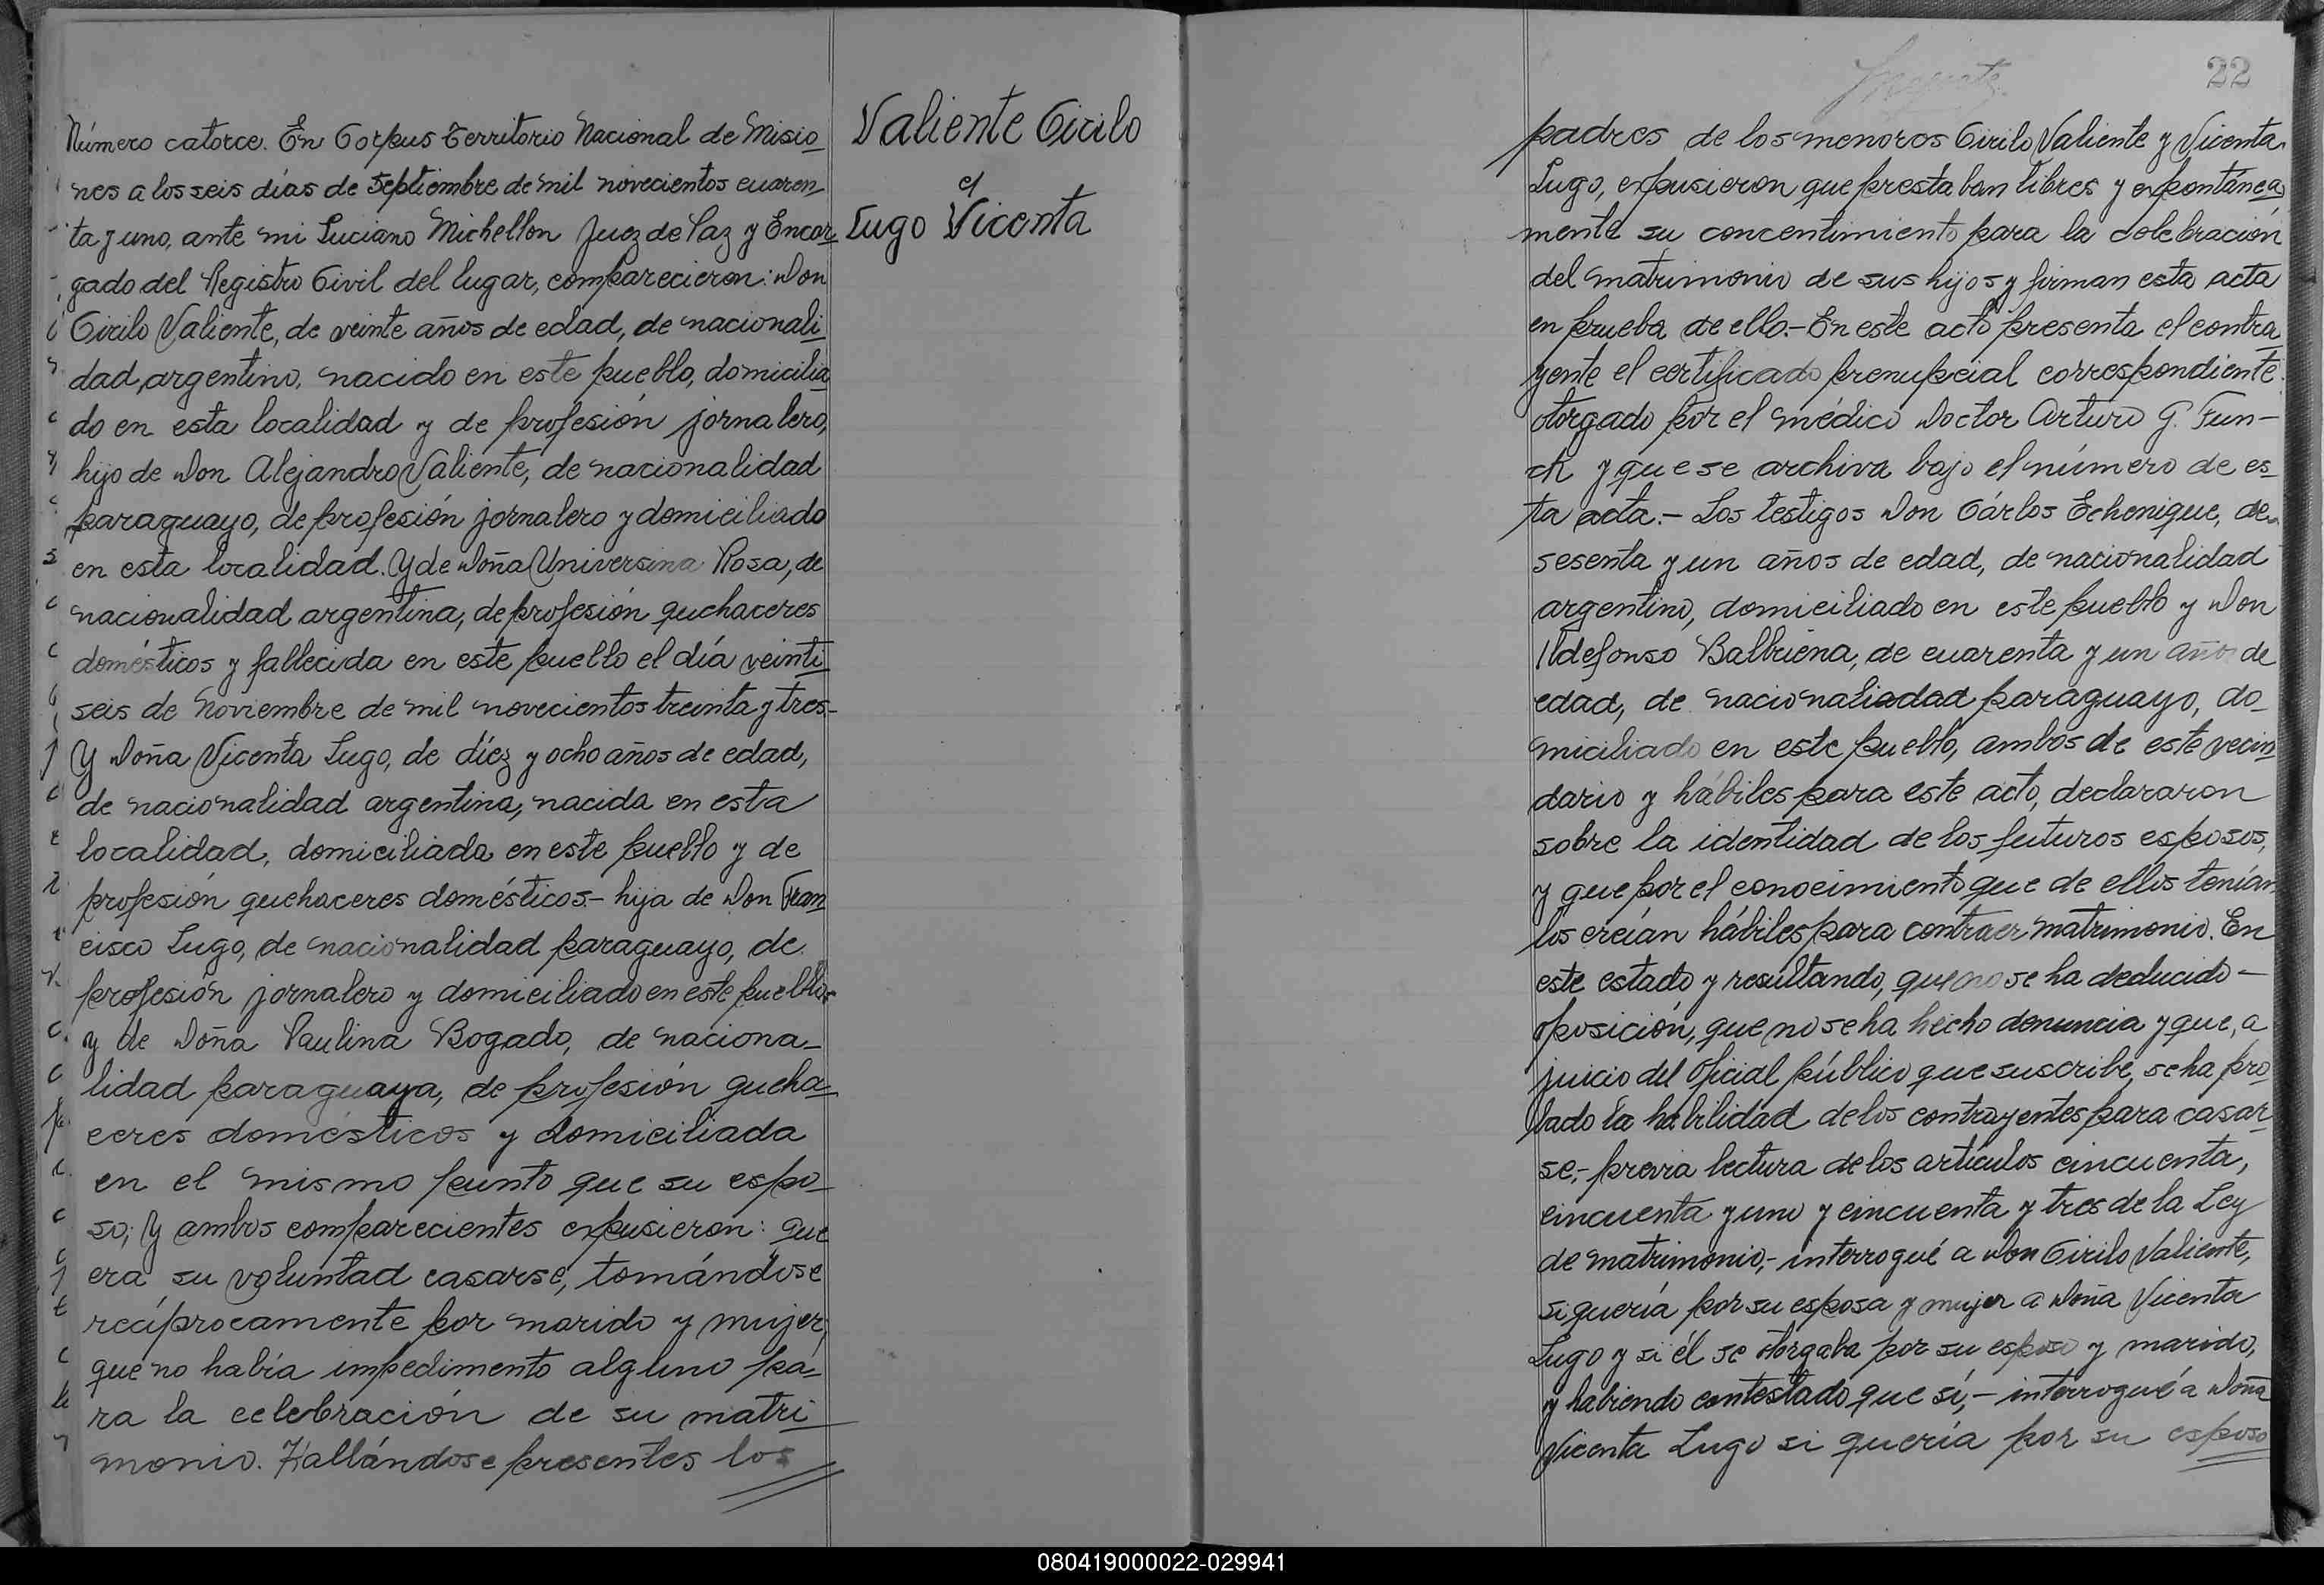 Número catorce. En Corpus Territorio Nacional de Misio_
nes a los seis días de Septiembre de mil novecientos cuaren_
ta y uno, ante mi Luciano Michellon Juez de Paz y Encar_
gado del Registro Civil del lugar, comparecieron: Don
Cirilo Valiente, de veinte años de edad, de nacionali_
dad argentino, nacido en este pueblo, domicilia_
do en esta localidad y de profesión jornalero,
hijo de Don Alejandro Valiente, de nacionalidad
paraguayo, de profesión jornalero y domiciliado
en esta localidad. Y de Doña Universina Rosa, de
nacionalidad argentina, de profesión quehaceres
domésticos y fallecida en este pueblo el día veinti_
seis de Noviembre de mil novecientos treinta y tres-
Y Doña Vicenta Lugo, de diéz y ocho años de edad,
de nacionalidad argentina, nacida en esta
localidad, domiciliada en este pueblo y de
profesión quehaceres domésticos.- hija de Don Fran_
cisco Lugo, de nacionalidad paraguayo, de
profesión jornalero y domiciliado en este pueblo-
y de Doña Paulina Bogado, de naciona_
lidad paraguaya, de profesión queha_
ceres domésticos y domiciliada
en el mismo punto que su espo_
so; Y ambos comparecientes expusieron: que
era su voluntad casarse, tomándose
recíprocamente por marido y mujer,
que no había impedimento alguno pa_
ra la celebración de su matri_
monio. Hallándose presentes los
Valiente Cirilo
c/
Lugo Vicenta
22
padres de los menores Cirilo Valiente y Vicenta
Lugo, expusieron que prestaban libres y expontánea_
mente su concentimiento para la celebración
del matrimonio de sus hijos y firman esta acta
en prueba de ello.- En este acto presenta el contra_
yente el certificado prenupcial correspondiente
otorgado por el médico Doctor Arturo G. Fun-
ck y que se archiva bajo el número de es_
ta acta.- Los testigos Don Cárlos Echenique, de
sesenta y un años de edad, de nacionalidad
argentino, domiciliado en este pueblo y Don
Ildefonso Balbuena, de cuarenta y un años de
edad, de nacionaliadad paraguayo, do_
miciliado en este pueblo, ambos de este vecin_
dario y hábiles para este acto, declararon
sobre la identidad de los futuros esposos,
y que por el conocimiento que de ellos tenían
los creían hábiles para contraer matrimonio. En
este estado y resultando, que no se ha deducido-
oposición, que no se ha hecho denuncia y que, a
juicio del Oficial público que suscribe, se ha pro_
bado la habilidad de los contrayentes para casar_
se,- previa lectura de los artículos cincuenta,
cincuenta y uno y cincuenta y tres de la Ley
de matrimonio,- interrogué a Don Cirilo Valiente,
si quería por su esposa y mujer a Doña Vicenta
Lugo y si él se otorgaba por su esposo y marido,
y habiendo contestado que sí,- interrogué a Doña
Vicenta Lugo si quería por su esposo
080419000022-029941